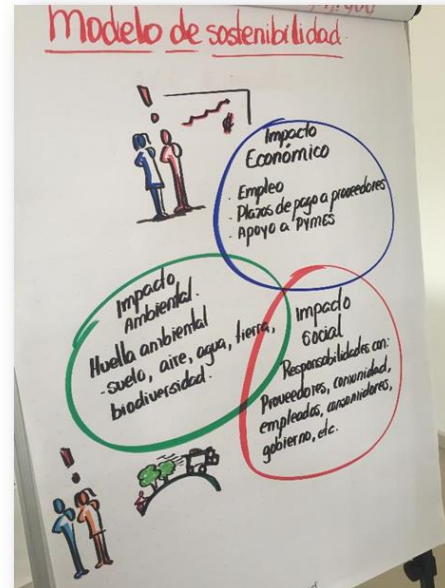 Modelo de sostenibilidad.
Impacto
Económico
- Empleo
- Plazos de pago a proveedores
- Apoyo a PYMES
Impacto
Ambiental.
Huella ambiental
- suelo, aire, agua, tierra,
biodiversidad.
Impacto
Social
Responsabilidades con:
Proveedores, comunidad,
empleados, consumidores,
gobierno, etc.